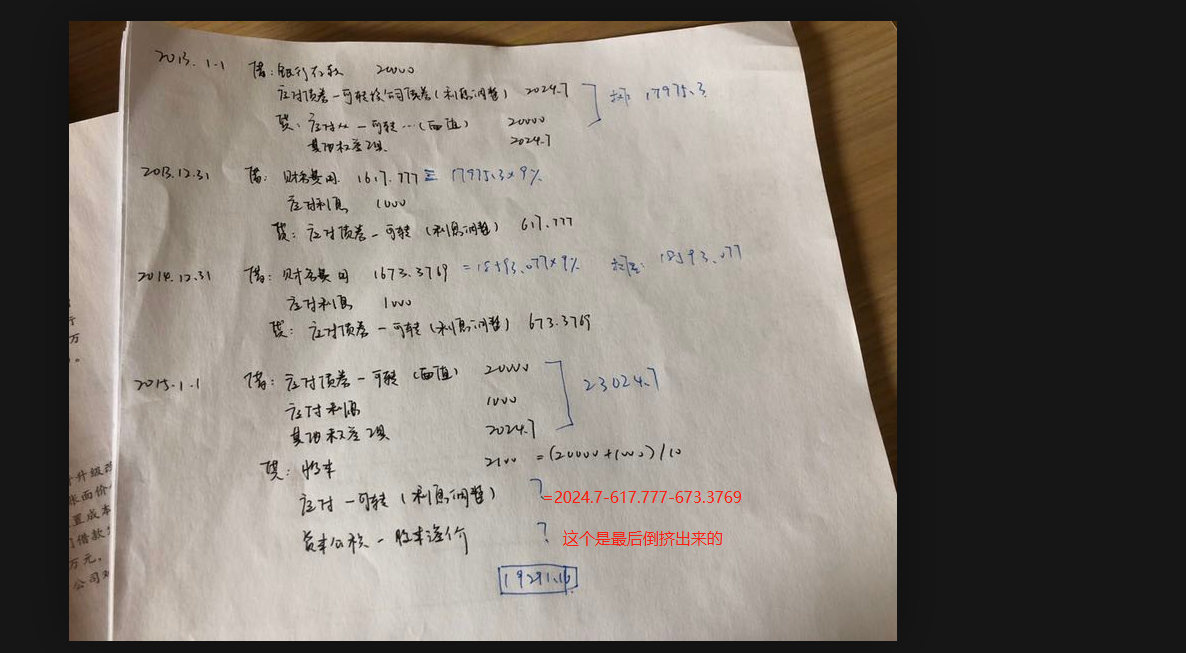 2013.1.1 借:银行存款 20000
应付债券-可转换公司债券(利息调整) 2024.7 摊: 17975.3
贷:应付从-可转…(面值) 20000
其他权益工具 2024.7
2013.12.31 借: 财务费用 1617.777 = 17975.3×9%
应付利息 1000
贷: 应付债券-可转(利息调整) 617.777
2014.12.31 借: 财务费用 1673.3769 = 18593.077×9% 摊: 18593.077
应付利息 1000
贷: 应付债券-可转(利息调整) 673.3769
2015.1.1 借: 应付债券-可转(面值) 20000
应付利息 1000 23024.7
其他权益工具 2024.7
贷: 股本 2100 =(20000+1000)/10
应付-可转(利息调整) ? =2024.7-617.777-673.3769
资本公积-股本溢价 ? 这个是最后倒挤出来的
19291.16
升级改
张面价
置成本
门借款
万元,
公司对